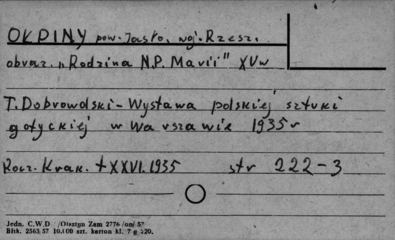 OŁPINY pow. Jasło, woj. Rzesz.
obraz. „Rodzina N.P. Marii" XVw
T. Dobrowolski - Wystawa polskiej sztuki
gotyckiej w Warszawie 1935 r
Rocz. Krak. t XXVI. 1935 str 222-3
Jedn. C.W.D /Olsztyn Zam 2776 /on/ 57
Bibk. 2563/57 10.100 szt. karton kl. 7 g 220.